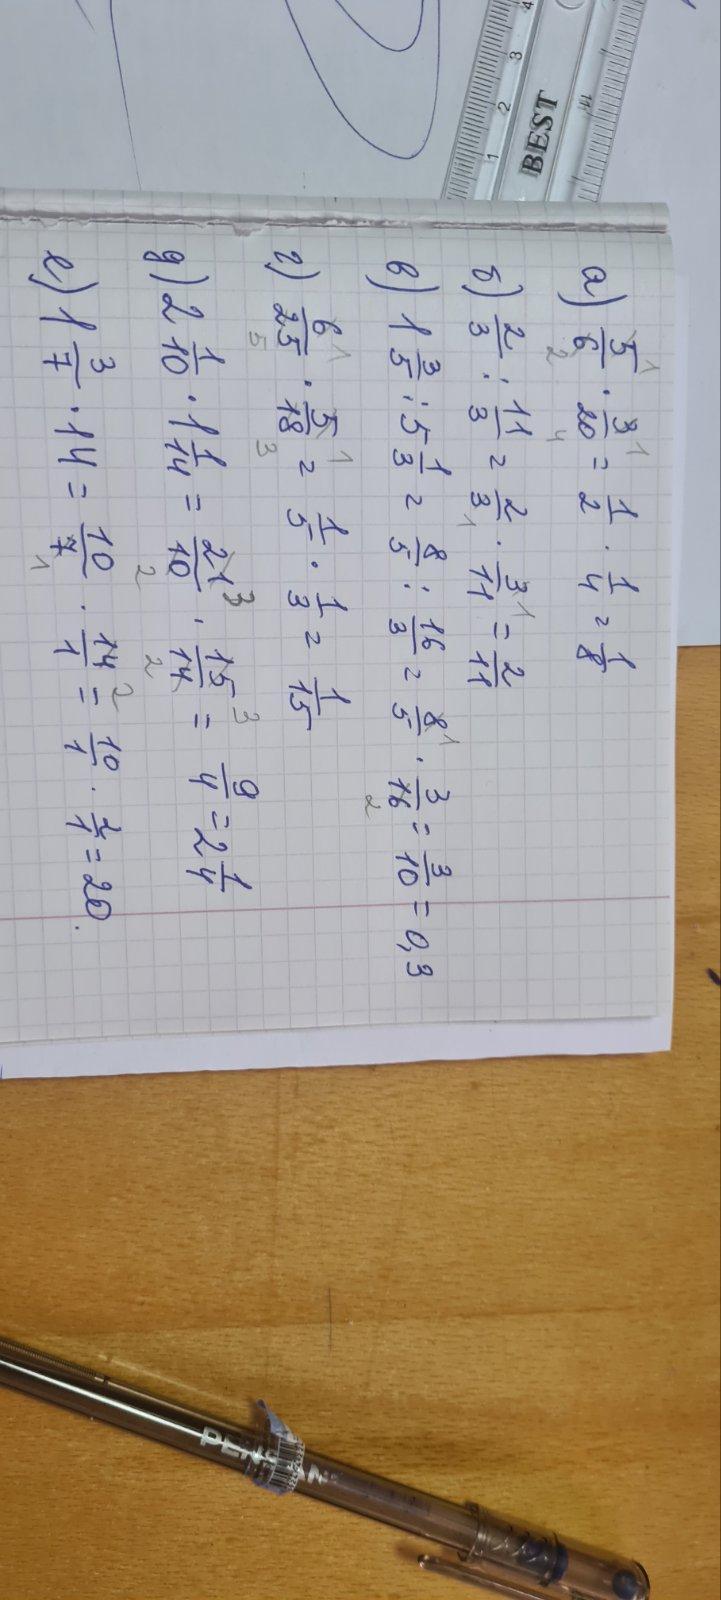 а) 5/6 · 3/20 = 1/2 · 1/4 = 1/8
б) 2/3 : 11/3 = 2/3 · 3/11 = 2/11
в) 1 3/5 : 5 1/3 = 8/5 : 16/3 = 8/5 · 3/16 = 3/10 = 0,3
г) 6/25 · 5/18 = 1/5 · 1/3 = 1/15
д) 2 1/10 · 1 1/14 = 21/10 · 15/14 = 9/4 = 2 1/4
е) 1 3/7 · 14 = 10/7 · 14/1 = 10/1 · 2/1 = 20.
BEST
1 2 3 4